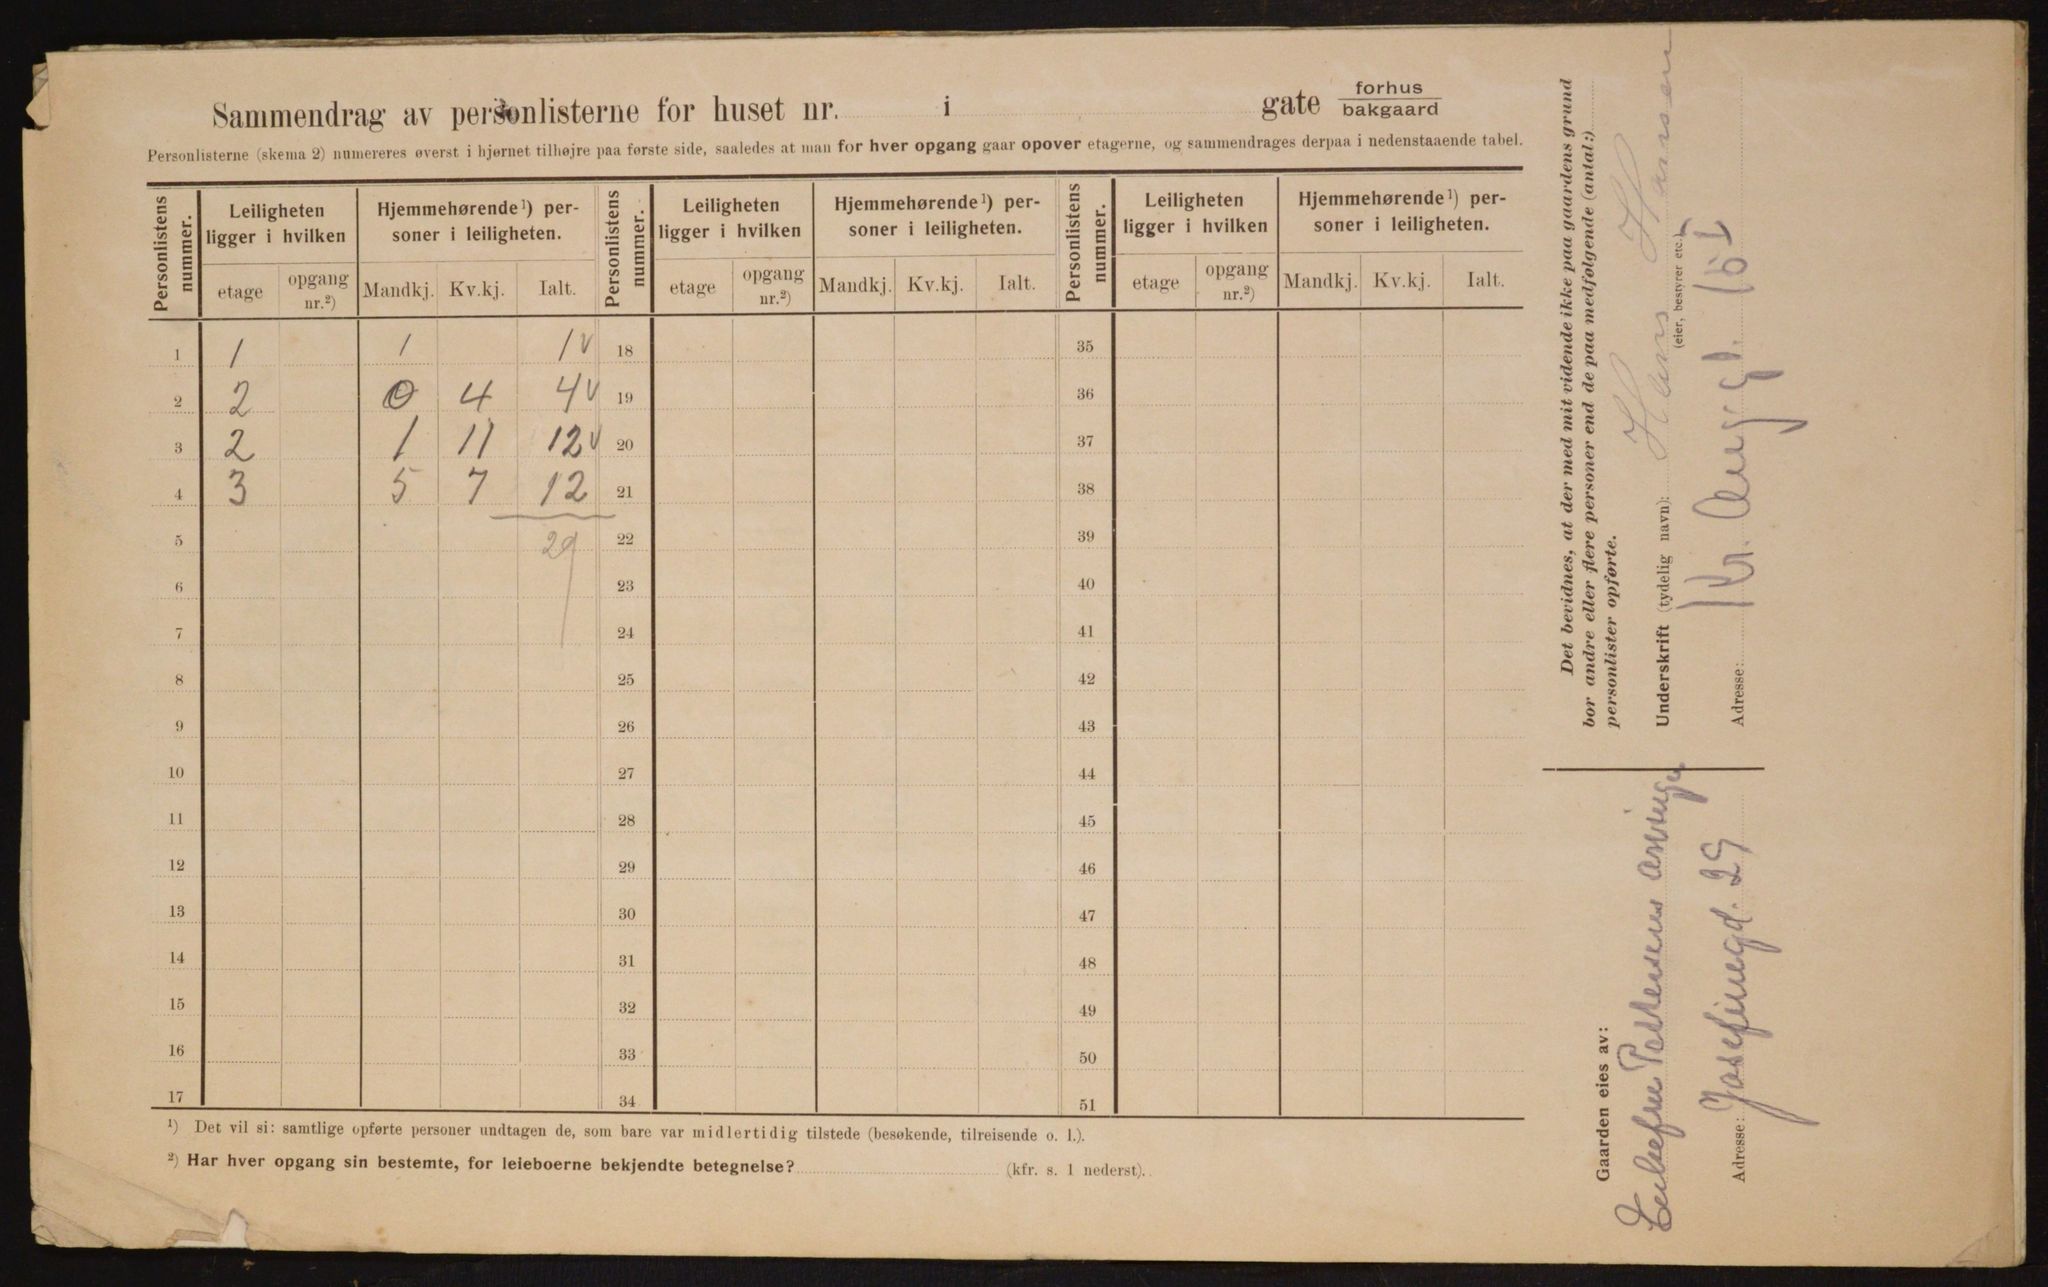 Sammendrag av personlisterne for huset nr. i gate forhus
bakgaard
Personlisterne (skema 2) numereres øverst i hjørnet tilhøjre paa første side, saaledes at man for hver opgang gaar opover etagerne, og sammendrages derpaa i nedenstaaende tabel.
Personlistens nummer. Leiligheten ligger i hvilken Hjemmehørende¹) personer i leiligheten. Personlistens nummer. Leiligheten ligger i hvilken Hjemmehørende¹) personer i leiligheten. Personlistens nummer. Leiligheten ligger i hvilken Hjemmehørende¹) personer i leiligheten.
etage opgang nr.²) Mandkj. Kv.kj. Ialt. etage opgang nr.²) Mandkj. Kv.kj. Ialt. etage opgang nr.²) Mandkj. Kv.kj. Ialt.
1 1 1 1 v 18 35
2 2 0 4 4 v 19 36
3 2 1 11 12 v 20 37
4 3 5 7 12 21 38
5 29 22 39
6 23 40
7 24 41
8 25 42
9 26 43
10 27 44
11 28 45
12 29 46
13 30 47
14 31 48
15 32 49
16 33 50
17 34 51
¹) Det vil si: samtlige opførte personer undtagen de, som bare var midlertidig tilstede (besøkende, tilreisende o. l.).
²) Har hver opgang sin bestemte, for leieboerne bekjendte betegnelse? (kfr. s. 1 nederst).
Det bevidnes, at der med mit vidende ikke paa gaardens grund
bor andre eller flere personer end de paa medfølgende (antal:)
personlister opførte.
Underskrift (tydelig navn): Hans Hansen
(eier, bestyrer etc.)
Adresse: Kr. Auggt.
Gaarden eies av:
Enkefru Pettersens arvinger
Adresse: Josefinegd. 29